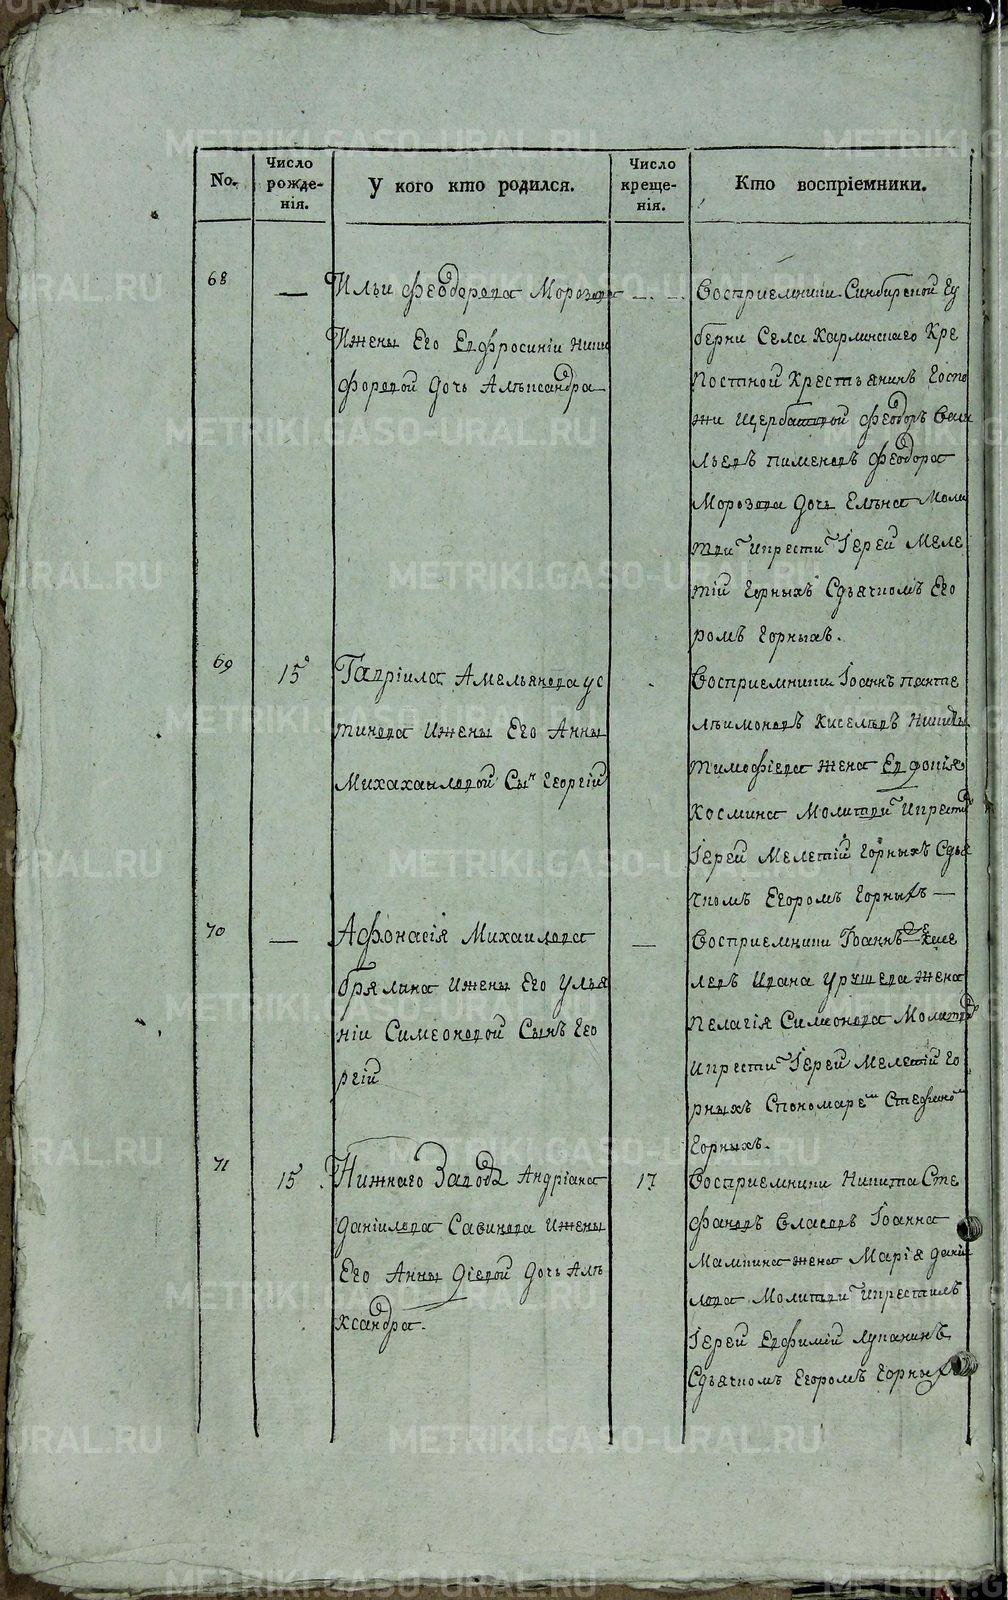 METRIKI.GASO-URAL.RU
No.
Число рожде-нія.
У кого кто родился.
Число креще-нія.
Кто воспріемники.
68
—
Ильи Феодорова Морозова
Ижены Его Евфросиніи Ники
форовой Дочь Алѣксандра
— . —
Восприемники Синбирской Гу
берни Села Карлинскаго Кре
постной Крестьянинъ Госпо
жи Щербатовой Феодоръ Сави
льевъ Пименовъ Феодора
Морозова Дочь Елѣна Моли
тви Икрести Іерей Меле
тій Горныхъ Сдьячкомъ Его
ромъ Горныхъ.
69
15
Гавріила Амельянова Ус
тинова Ижены Его Анны
Михахаиловой Сын Георгій
Восприемники Іоаннъ Панте
лѣимоновъ Киселѣвъ Никиты
Тимофіева Жена Евдокія
Космина Молитви Икрести
Іерей Мелетій Горныхъ Сдья
чкомъ Егоромъ Горныхъ —
70
—
Афонасія Михаилова
брялина Ижены Его Улья
ніи Симеоновой Сынъ Гео
ргій
—
Восприемники Іоаннъ Кисе
левъ Ивана Урушева Жена
Пелагія Симеонова Молитви
Икрести Іерей Мелетій Го
рныхъ Спономарем Стефаном
Горныхъ.
71
15
Нижнаго Завода Андріана
Даніилова Савинова Ижены
Его Анны Дочь Алѣ
ксандра.
17
Восприемники Никита Сте
фановъ Власовъ Іоанна
Мамкина жена Марія Дании
лова Молитви Икрестилъ
Іерей Евфимій Лупанинъ
Сдьячкомъ Егоромъ Горных